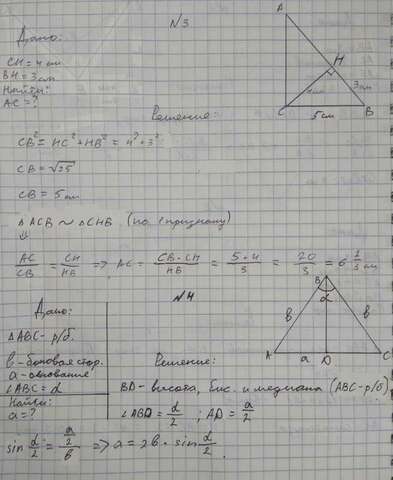 N3
Дано:
CH = 4 см
BH = 3 см
Найти:
AC = ?
A
H
4 см
3 см
C
5 см
B
Решение:
CB² = HC² + HB² = 4² + 3²
CB = √25
CB = 5 см
△ACB ~ △CHB (по 1 признаку)
⇓
AC/CB = CH/HB => AC = CB · CH/HB = 5 · 4/3 = 20/3 = 6 2/3 см
N4
Дано:
△ABC - р/б.
b - боковая стор.
a - основание
∠ABC = α
Найти:
a = ?
B
α
b
b
A
a
D
C
Решение:
BD - высота, бис. и медиана (ABC - р/б)
∠ABD = α/2 ; AD = a/2
sin α/2 = a/2/b => a = 2b · sin α/2.